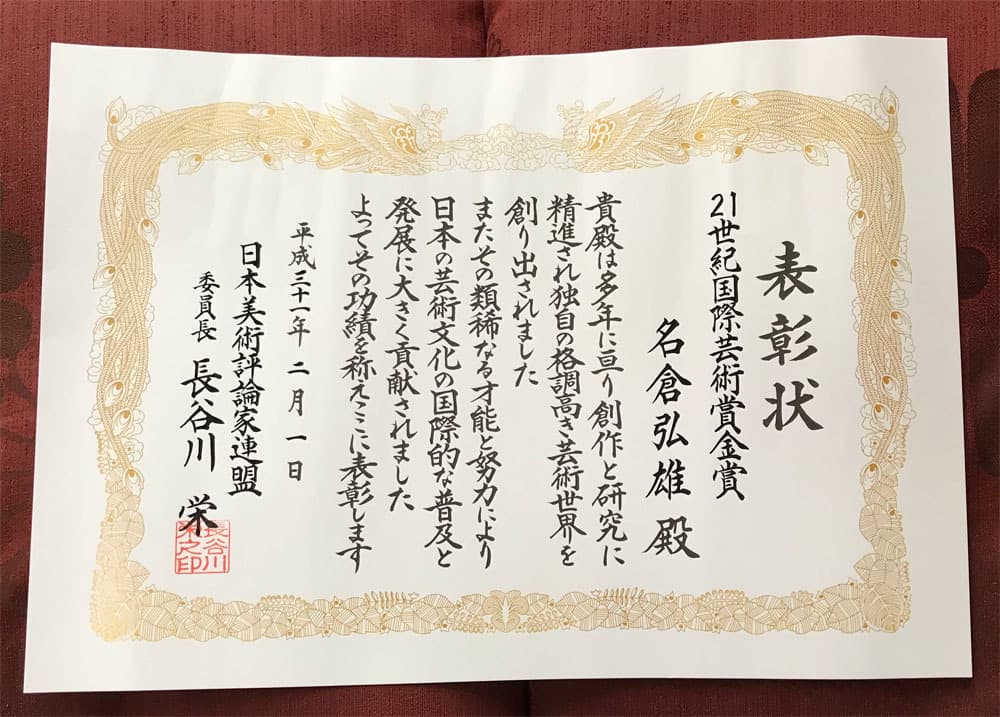 表彰状
21世紀国際芸術賞金賞
名倉弘雄 殿
貴殿は多年に亘り創作と研究に
精進され独自の格調高き芸術世界を
創り出されました
またその類稀なる才能と努力により
日本の芸術文化の国際的な普及と
発展に大きく貢献されました
よってその功績を称えここに表彰します
平成三十一年 二月一日
日本美術評論家連盟
委員長 長谷川 栄
長谷川
栄之印